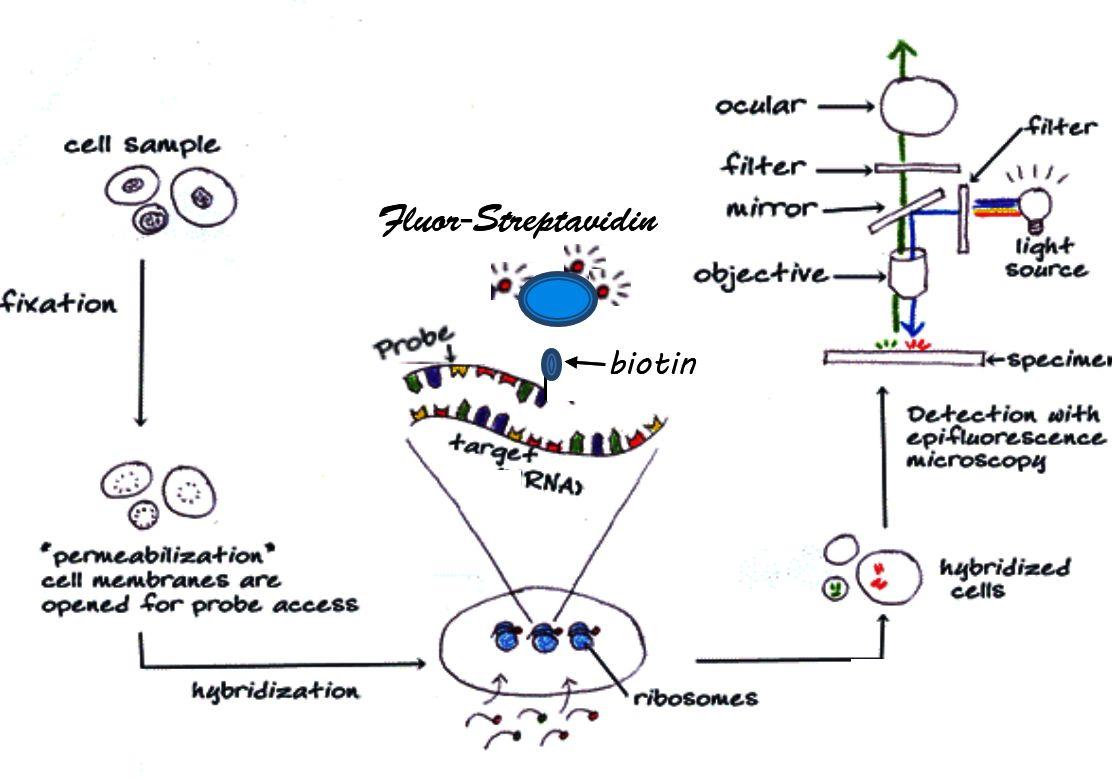 cell sample
fixation
"permeabilization"
cell membranes are
opened for probe access
hybridization
Fluor-Streptavidin
Probe
biotin
target
RNA
ribosomes
hybridized
cells
Detection with
epifluorescence
microscopy
ocular
filter
filter
mirror
light
source
objective
specimen